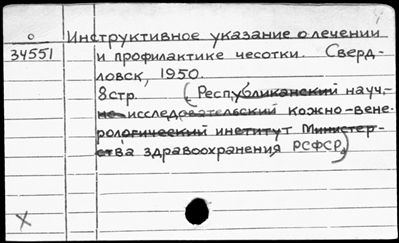 о Инструктивное указание о лечении
34551 и профилактике чесотки. Сверд-
ловск, 1950.
8 стр. (Республиканский науч.-
но-исследовательский кожно-вене-
рологический институт Министер-
ства здравоохранения РСФСР)
X